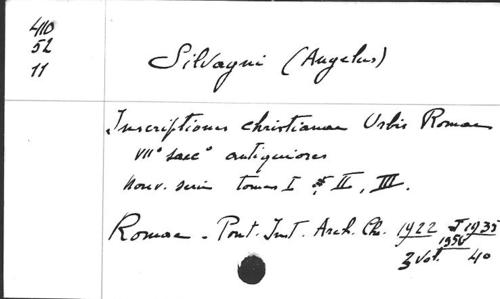 410
52
11
Silvagni (Angelus)
Inscriptiones christianae Urbis Romae
VII° saec° antiquiores
nouv. serie tomes I, II, III.
Romae - Pont. Inst. Arch. Ch. 1922 1935
1956
3 vol. 40